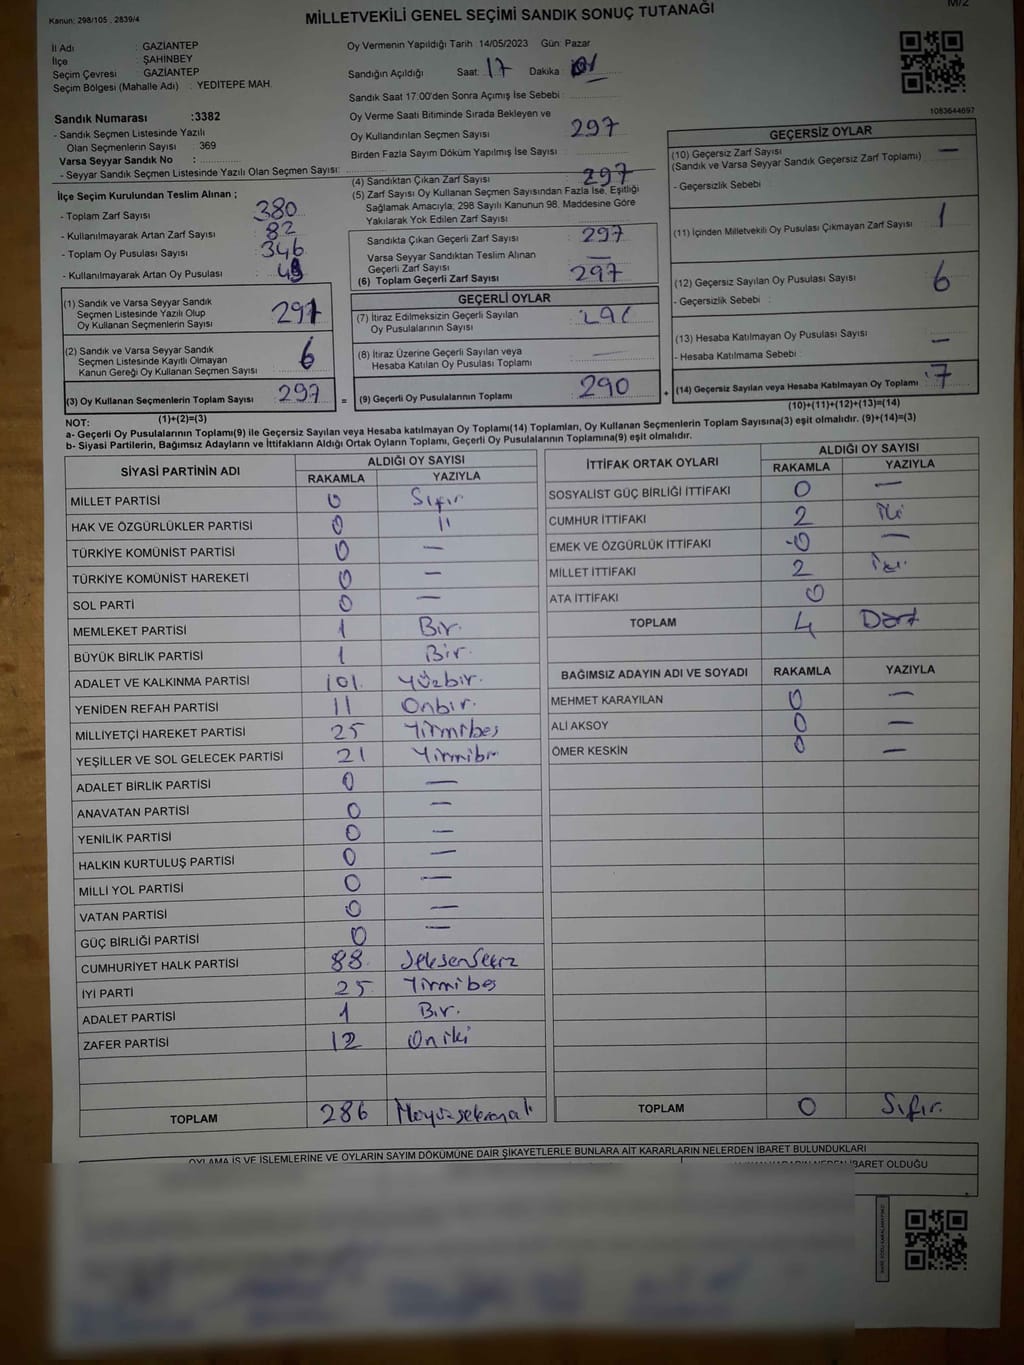 Kanun: 298/105 , 2839/4
M/2
MİLLETVEKİLİ GENEL SEÇİMİ SANDIK SONUÇ TUTANAĞI
İl Adı : GAZİANTEP
İlçe : ŞAHİNBEY
Seçim Çevresi : GAZİANTEP
Seçim Bölgesi (Mahalle Adı) : YEDİTEPE MAH.
Sandık Numarası :3382
- Sandık Seçmen Listesinde Yazılı
Olan Seçmenlerin Sayısı : 369
Varsa Seyyar Sandık No :
- Seyyar Sandık Seçmen Listesinde Yazılı Olan Seçmen Sayısı:
Oy Vermenin Yapıldığı Tarih :14/05/2023 Gün: Pazar
Sandığın Açıldığı Saat: 17 Dakika : 01
Sandık Saat 17:00'den Sonra Açımış İse Sebebi :
Oy Verme Saati Bitiminde Sırada Bekleyen ve
Oy Kullandırılan Seçmen Sayısı : 297
Birden Fazla Sayım Döküm Yapılmış İse Sayısı :
1083644697
İlçe Seçim Kurulundan Teslim Alınan ;
- Toplam Zarf Sayısı : 380
- Kullanılmayarak Artan Zarf Sayısı : 82
- Toplam Oy Pusulası Sayısı : 346
- Kullanılmayarak Artan Oy Pusulası :
(1) Sandık ve Varsa Seyyar Sandık
Seçmen Listesinde Yazılı Olup
Oy Kullanan Seçmenlerin Sayısı : 297
(2) Sandık ve Varsa Seyyar Sandık
Seçmen Listesinde Kayıtlı Olmayan
Kanun Gereği Oy Kullanan Seçmen Sayısı : 6
(3) Oy Kullanan Seçmenlerin Toplam Sayısı : 297
(1)+(2)=(3)
(4) Sandıktan Çıkan Zarf Sayısı : 297
(5) Zarf Sayısı Oy Kullanan Seçmen Sayısından Fazla İse, Eşitliği
Sağlamak Amacıyla; 298 Sayılı Kanunun 98. Maddesine Göre
Yakılarak Yok Edilen Zarf Sayısı :
Sandıkta Çıkan Geçerli Zarf Sayısı : 297
Varsa Seyyar Sandıktan Teslim Alınan
Geçerli Zarf Sayısı : —
(6) Toplam Geçerli Zarf Sayısı : 297
GEÇERLİ OYLAR
(7) İtiraz Edilmeksizin Geçerli Sayılan
Oy Pusulalarının Sayısı :
(8) İtiraz Üzerine Geçerli Sayılan veya
Hesaba Katılan Oy Pusulası Toplamı : —
= (9) Geçerli Oy Pusulalarının Toplamı : 290 +
GEÇERSİZ OYLAR
(10) Geçersiz Zarf Sayısı : —
(Sandık ve Varsa Seyyar Sandık Geçersiz Zarf Toplamı)
- Geçersizlik Sebebi :
(11) İçinden Milletvekili Oy Pusulası Çıkmayan Zarf Sayısı : 1
(12) Geçersiz Sayılan Oy Pusulası Sayısı : 6
- Geçersizlik Sebebi :
(13) Hesaba Katılmayan Oy Pusulası Sayısı : —
- Hesaba Katılmama Sebebi :
(14) Geçersiz Sayılan veya Hesaba Katılmayan Oy Toplamı : 7
(10)+(11)+(12)+(13)=(14)
NOT:
a- Geçerli Oy Pusulalarının Toplamı(9) ile Geçersiz Sayılan veya Hesaba katılmayan Oy Toplamı(14) Toplamları, Oy Kullanan Seçmenlerin Toplam Sayısına(3) eşit olmalıdır. (9)+(14)=(3)
b- Siyasi Partilerin, Bağımsız Adayların ve İttifakların Aldığı Ortak Oyların Toplamı, Geçerli Oy Pusulalarının Toplamına(9) eşit olmalıdır.
SİYASİ PARTİNİN ADI ALDIĞI OY SAYISI
RAKAMLA YAZIYLA
MİLLET PARTİSİ 0 Sıfır
HAK VE ÖZGÜRLÜKLER PARTİSİ 0 "
TÜRKİYE KOMÜNİST PARTİSİ 0 —
TÜRKİYE KOMÜNİST HAREKETİ 0 —
SOL PARTİ 0 —
MEMLEKET PARTİSİ 1 Bir.
BÜYÜK BİRLİK PARTİSİ 1 Bir.
ADALET VE KALKINMA PARTİSİ 101. Yüzbir.
YENİDEN REFAH PARTİSİ 11 Onbir.
MİLLİYETÇİ HAREKET PARTİSİ 25 Yirmibeş
YEŞİLLER VE SOL GELECEK PARTİSİ 21 Yirmibir
ADALET BİRLİK PARTİSİ 0 —
ANAVATAN PARTİSİ 0 —
YENİLİK PARTİSİ 0 —
HALKIN KURTULUŞ PARTİSİ 0 —
MİLLİ YOL PARTİSİ 0 —
VATAN PARTİSİ 0 —
GÜÇ BİRLİĞİ PARTİSİ 0 —
CUMHURİYET HALK PARTİSİ 88 Seksensekiz
İYİ PARTİ 25 Yirmibeş
ADALET PARTİSİ 1 Bir.
ZAFER PARTİSİ 12 Oniki
TOPLAM 286
İTTİFAK ORTAK OYLARI ALDIĞI OY SAYISI
RAKAMLA YAZIYLA
SOSYALİST GÜÇ BİRLİĞİ İTTİFAKI 0 —
CUMHUR İTTİFAKI 2 İki
EMEK VE ÖZGÜRLÜK İTTİFAKI 0 —
MİLLET İTTİFAKI 2 İki
ATA İTTİFAKI 0
TOPLAM 4 Dört
BAĞIMSIZ ADAYIN ADI VE SOYADI RAKAMLA YAZIYLA
MEHMET KARAYILAN 0 —
ALİ AKSOY 0 —
ÖMER KESKİN 0 —
TOPLAM 0 Sıfır.
OYLAMA İŞ VE İŞLEMLERİNE VE OYLARIN SAYIM DÖKÜMÜNE DAİR ŞİKAYETLERLE BUNLARA AİT KARARLARIN NELERDEN İBARET BULUNDUKLARI
İBARET OLDUĞU